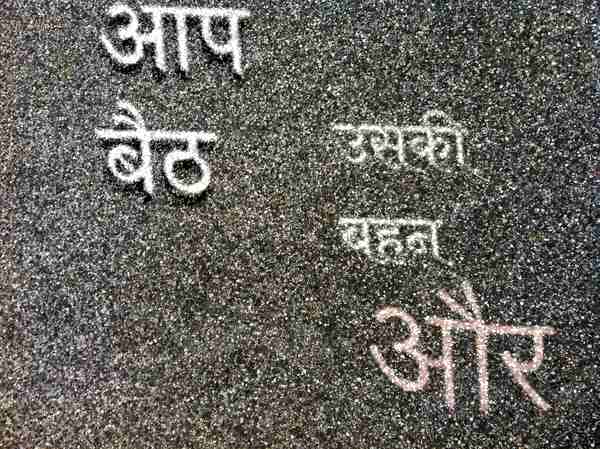 आप
बैठ
उसकी
बहन
और